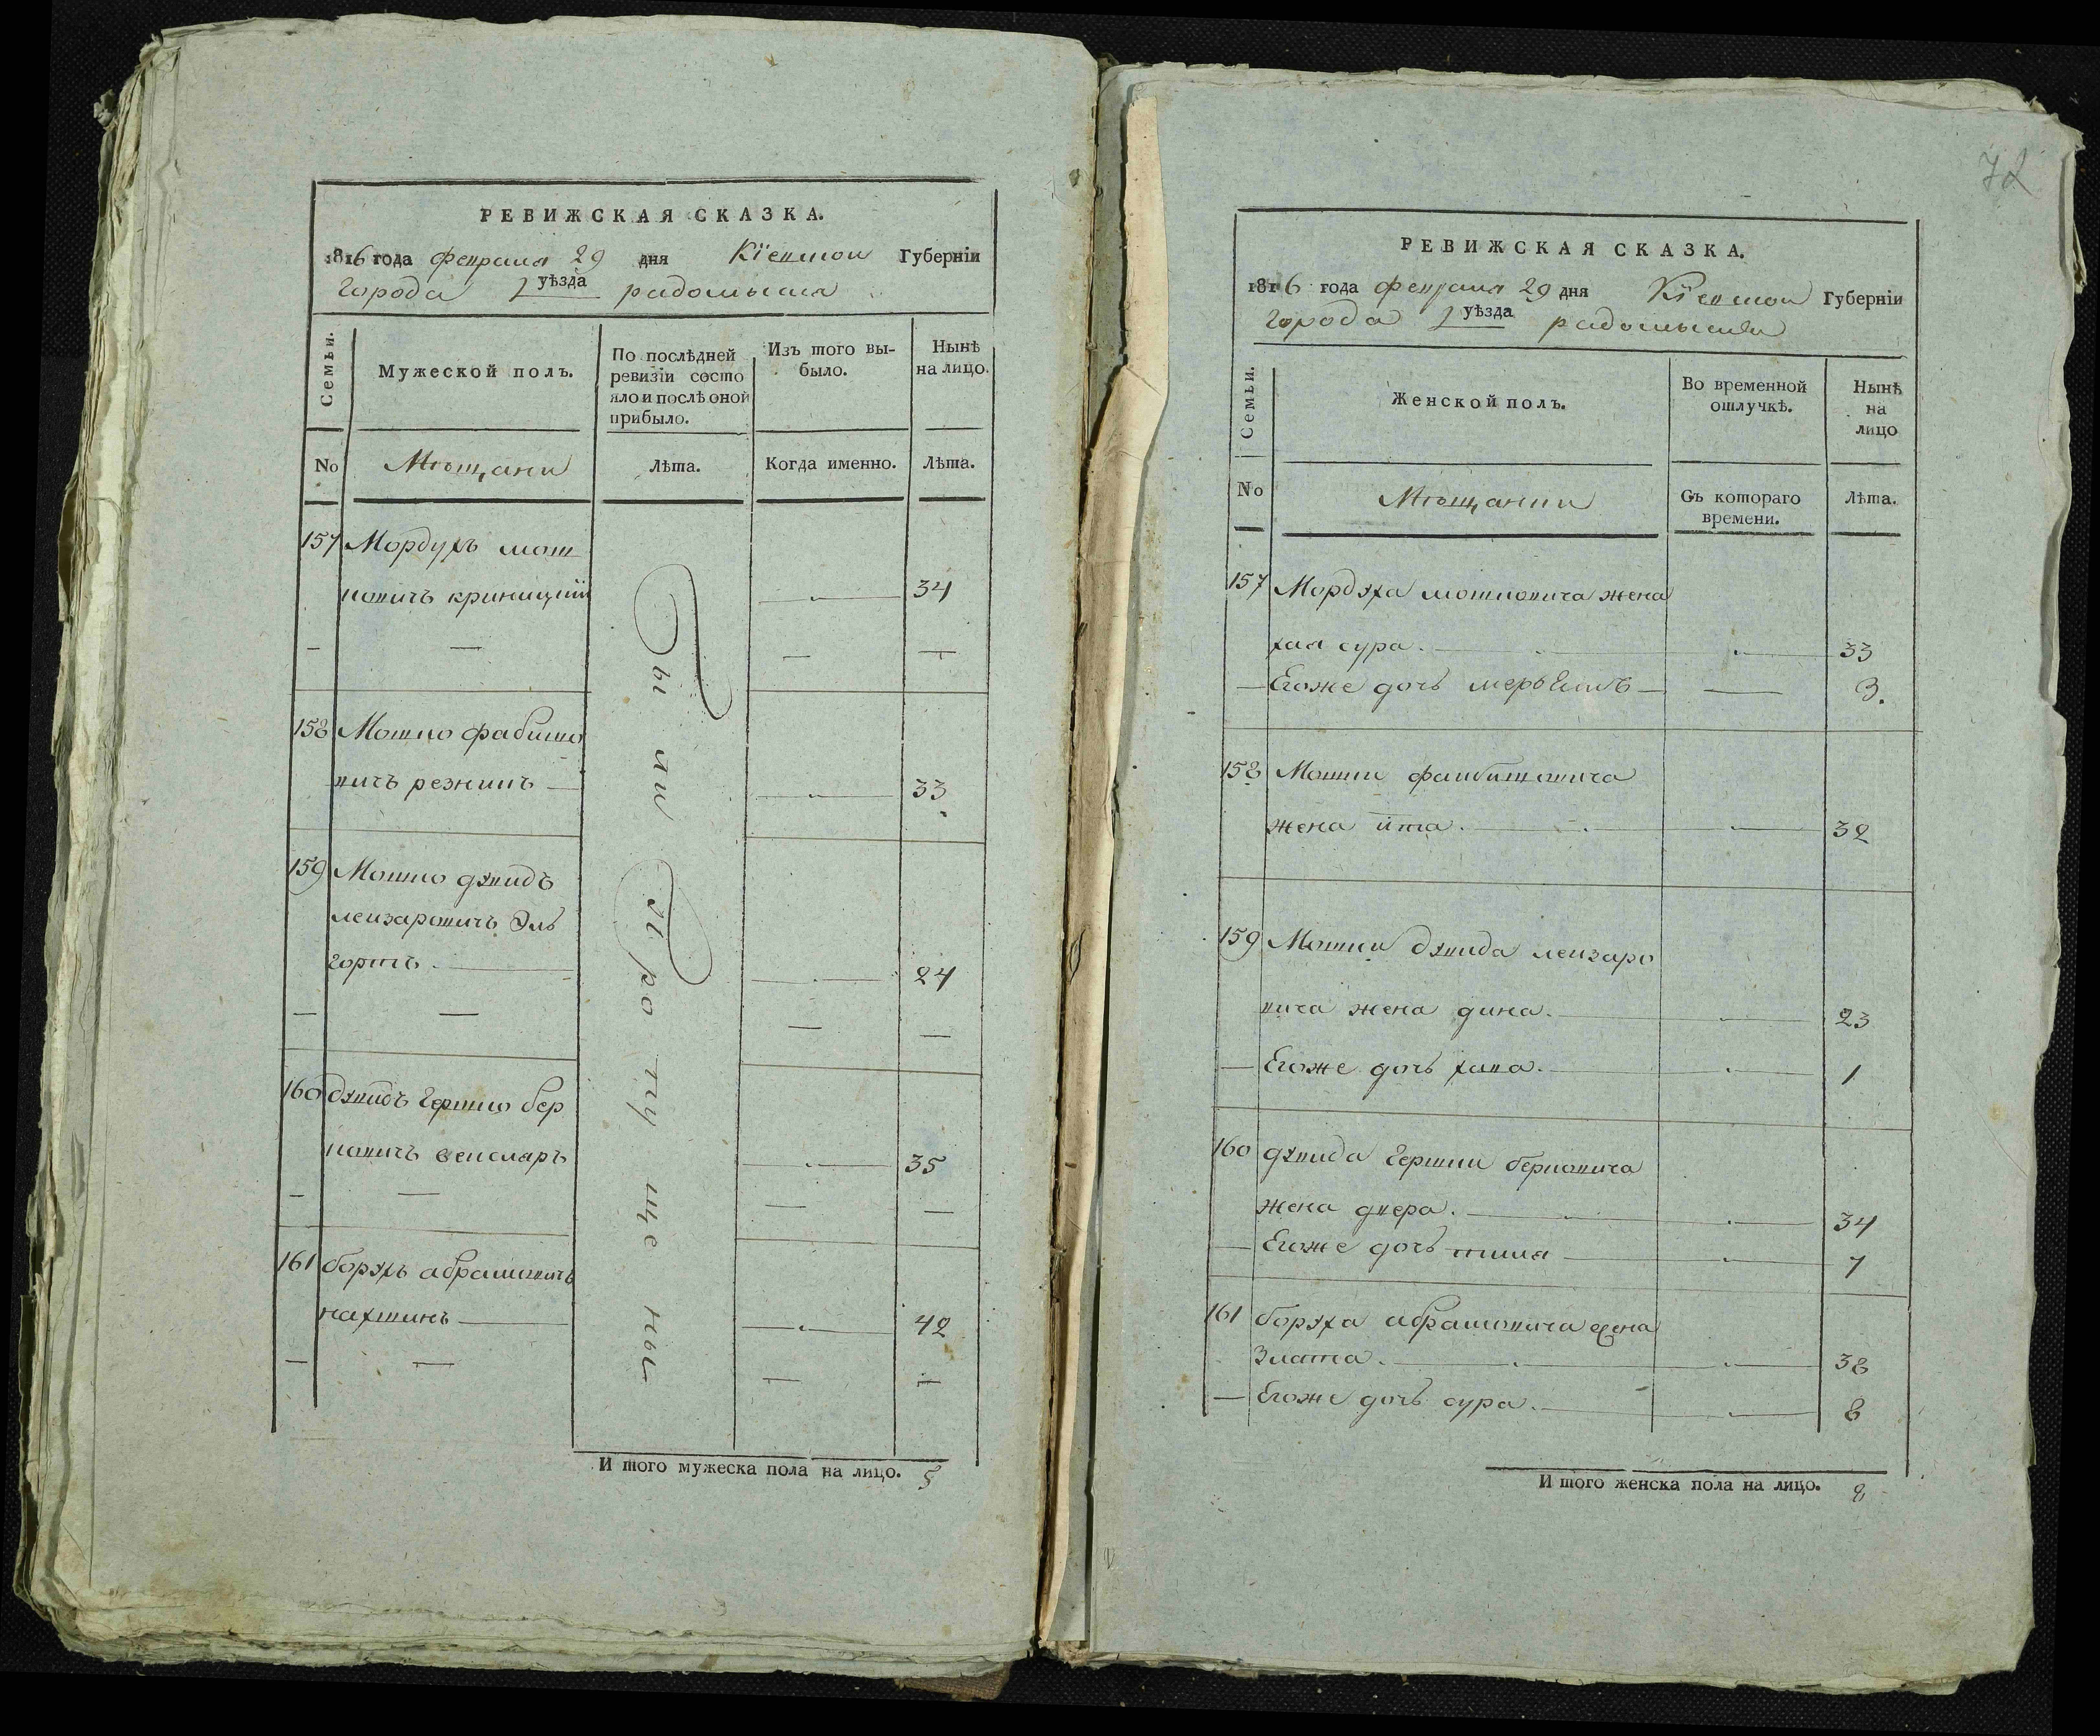 РЕВИЖСКАЯ СКАЗКА.
1816 года февраля 29 дня Кїевской Губернїи
Города уѣзда радомысля
Семьи.
Мужеской полъ.
По послѣдней ревизїи состо яло и послѣ оной прибыло.
Изъ того вы-было.
Нынѣ на лицо.
No
Мѣщани
Лѣта.
Когда именно.
Лѣта.
157 Мордухъ мош
ковичъ криницкїй 34
158 Мошко фабишо
вичъ резникъ 33
159 Мошко дувидъ
лейзаровичъ Эль
гортъ. 24
160 дувидъ Гершко бер
ковичъ 35
161 борухъ абрамовичъ
42
Были Пропущены
И того мужеска пола на лицо. 5
72
РЕВИЖСКАЯ СКАЗКА.
1816 года февраля 29 дня Кїевской Губернїи
Города уѣзда радомысля
Семьи.
Женской полъ.
Во временной отлучкѣ.
Нынѣ на лицо
No
Мѣщанки
Съ котораго времени.
Лѣта.
157 Мордуха мошковича жена
хая сура. 33
Егоже дочь 3.
158 Мошки файбишовича
жена ита. 32
159 Мошки дувида лейзаро
вича жена дина. 23
Егоже дочь хана. 1
160 дувида Гершки берковича
жена двера. 34
Егоже дочь 7
161 боруха абрамовича жена
Злата. 38
Егоже дочь сура. 8
И того женска пола на лицо. 9